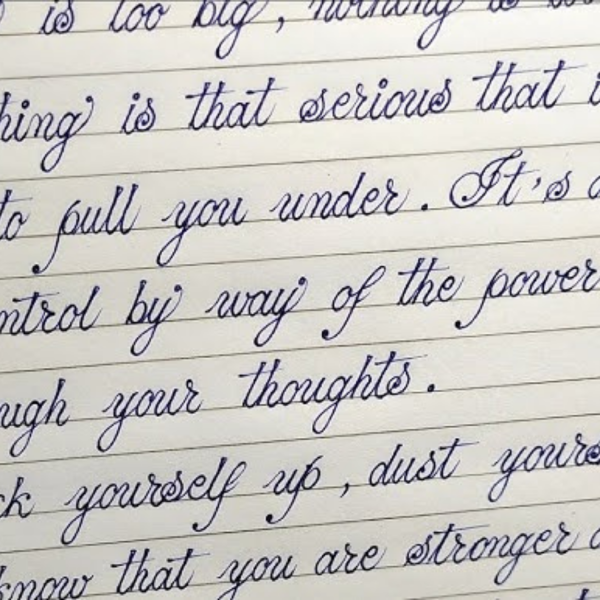 is too big, nothing is
hing is that serious that i
to pull you under. It's a
ntrol by way of the power
ugh your thoughts.
ck yourself up, dust yours
know that you are stronger